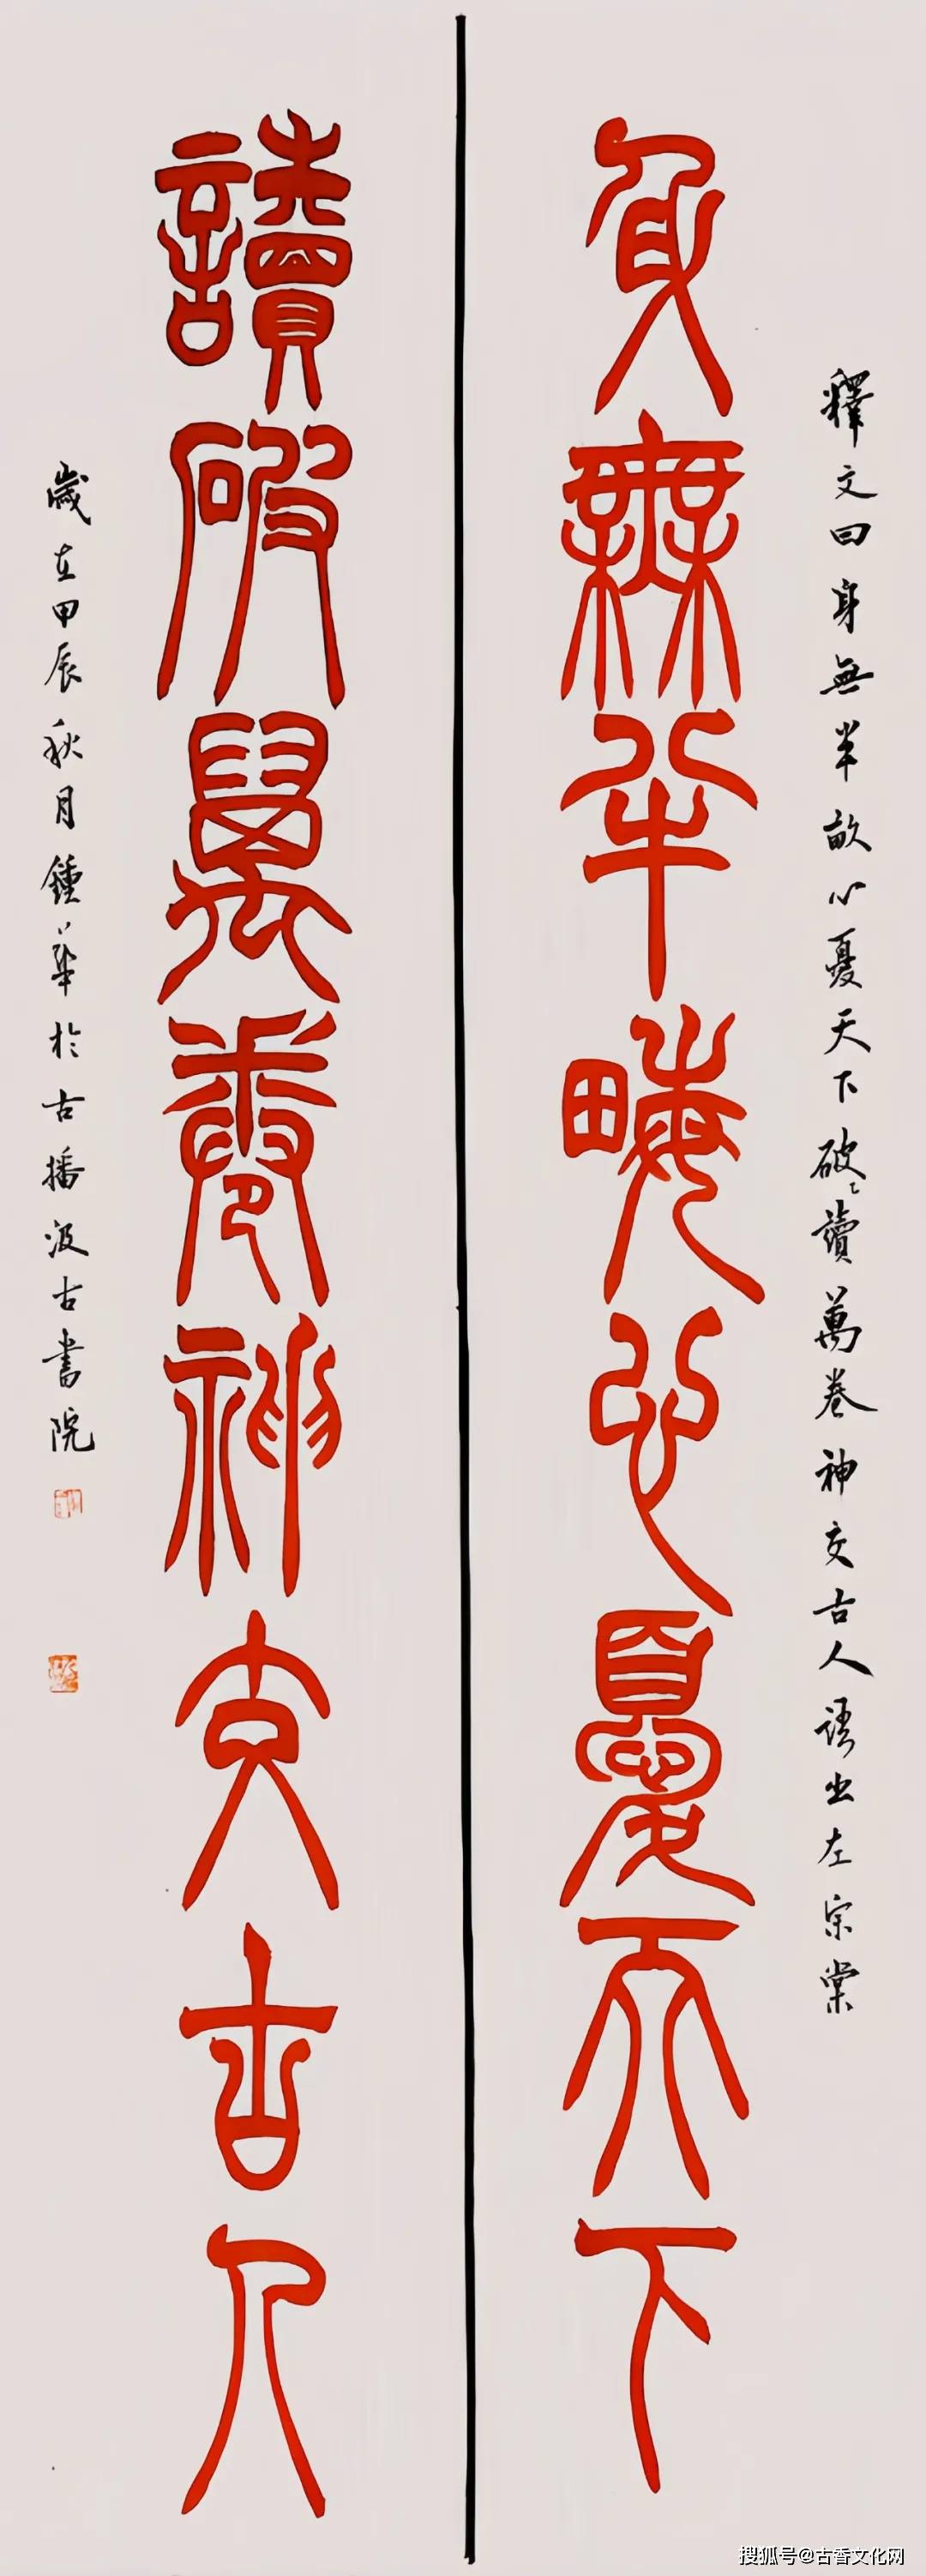 釋文曰身無半畝心憂天下破讀萬卷神交古人語出左宗棠
身無半畝心憂天下
讀破萬卷神交古人
歲在甲辰秋月鍾華於古播汲古書院
搜狐号@古香文化网